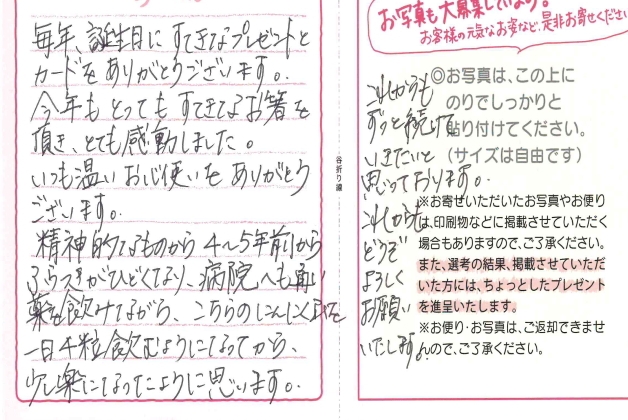 毎年、誕生日に すてきなプレゼントと
カードを ありがとうございます。
今年も とっても すてきなお箸を
頂き、とても感動しました。
いつも温い お心使いを ありがとう
ございます。
精神的なものから 4〜5年前から
ふらつきがひどくなり、病院へも通い
薬を飲みながら、こちらのにんにく
一日4粒飲むようになってから、
少し楽になったように思います。
谷折り線
お写真も大募集しています!
お客様の元気なお姿など、是非お寄せください
◎お写真は、この上に
のりでしっかりと
貼り付けてください。
(サイズは自由です)
※お寄せいただいたお写真やお便り
は、印刷物などに掲載させていただく
場合もありますので、ご了承ください。
また、選考の結果、掲載させていただ
いた方には、ちょっとしたプレゼント
を進呈いたします。
※お便り・お写真は、ご返却できませ
んので、ご了承ください。
これからも
ずっと続けて
いきたいと
思っております。
これからも
どうぞ
よろしく
お願い
いたします。